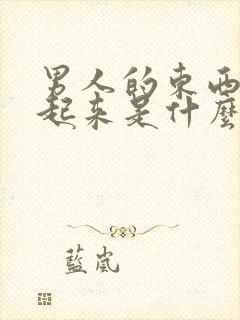 男人的東西
起來是什麼
藍嵐